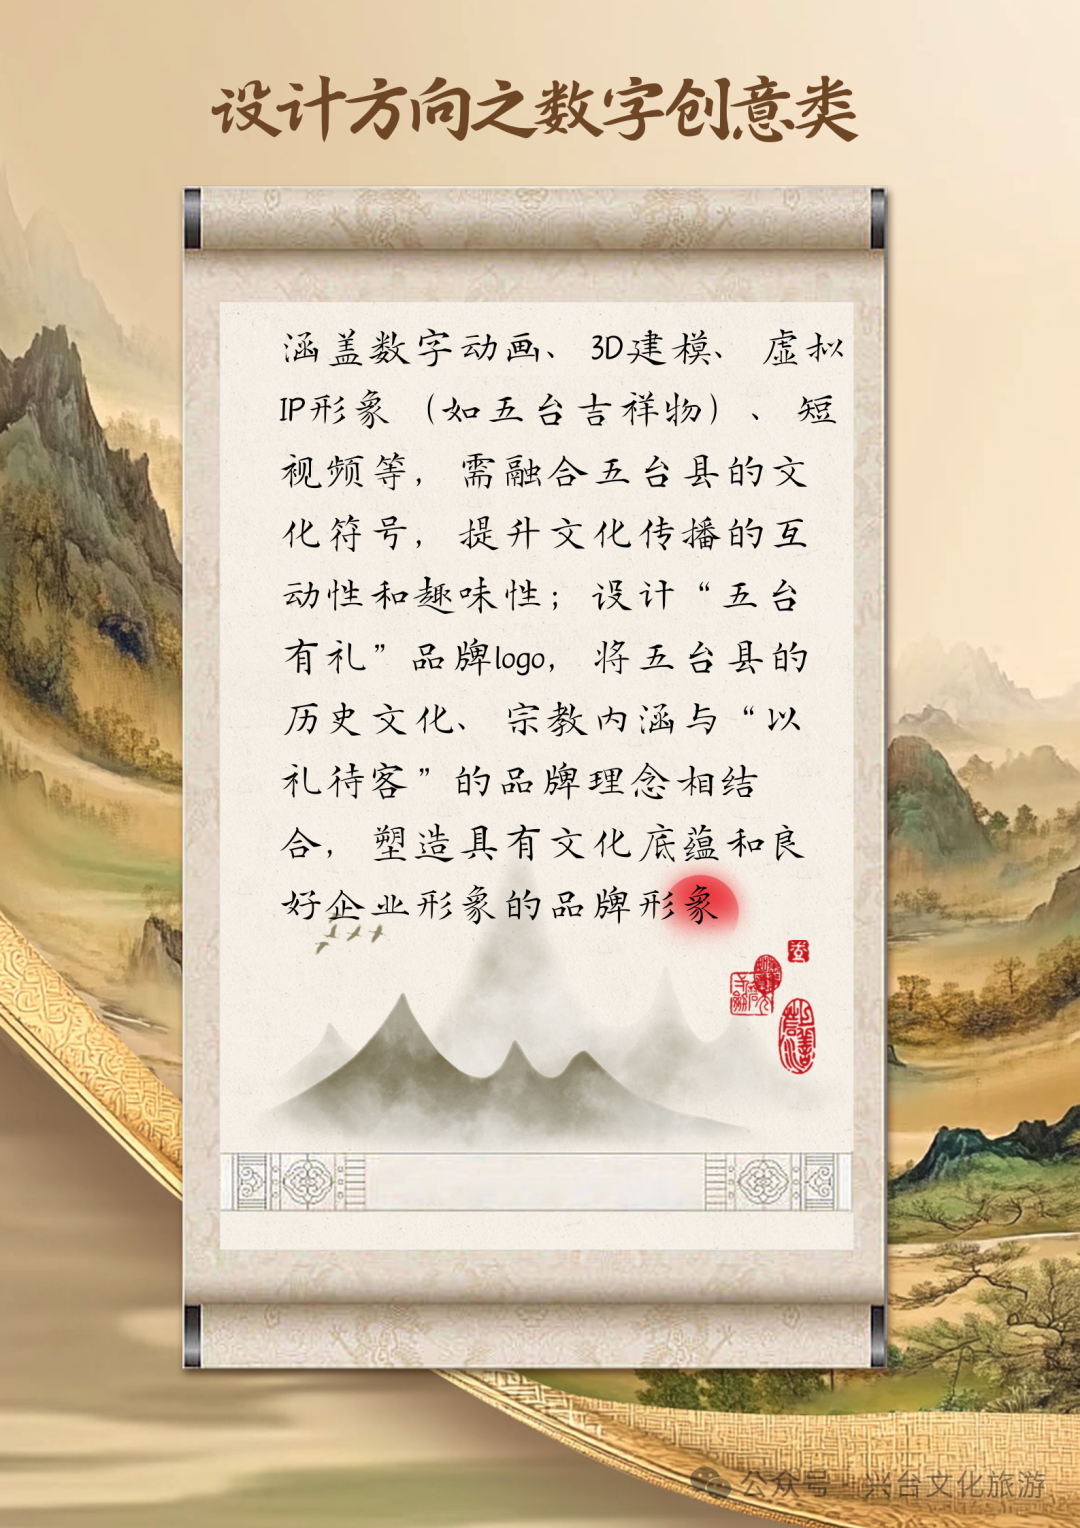 设计方向之数字创意类
涵盖数字动画、3D建模、虚拟
IP形象（如五台吉祥物）、短
视频等，需融合五台县的文
化符号，提升文化传播的互
动性和趣味性；设计“五台
有礼”品牌logo，将五台县的
历史文化、宗教内涵与“以
礼待客”的品牌理念相结
合，塑造具有文化底蕴和良
好企业形象的品牌形象
公众号·兴台文化旅游